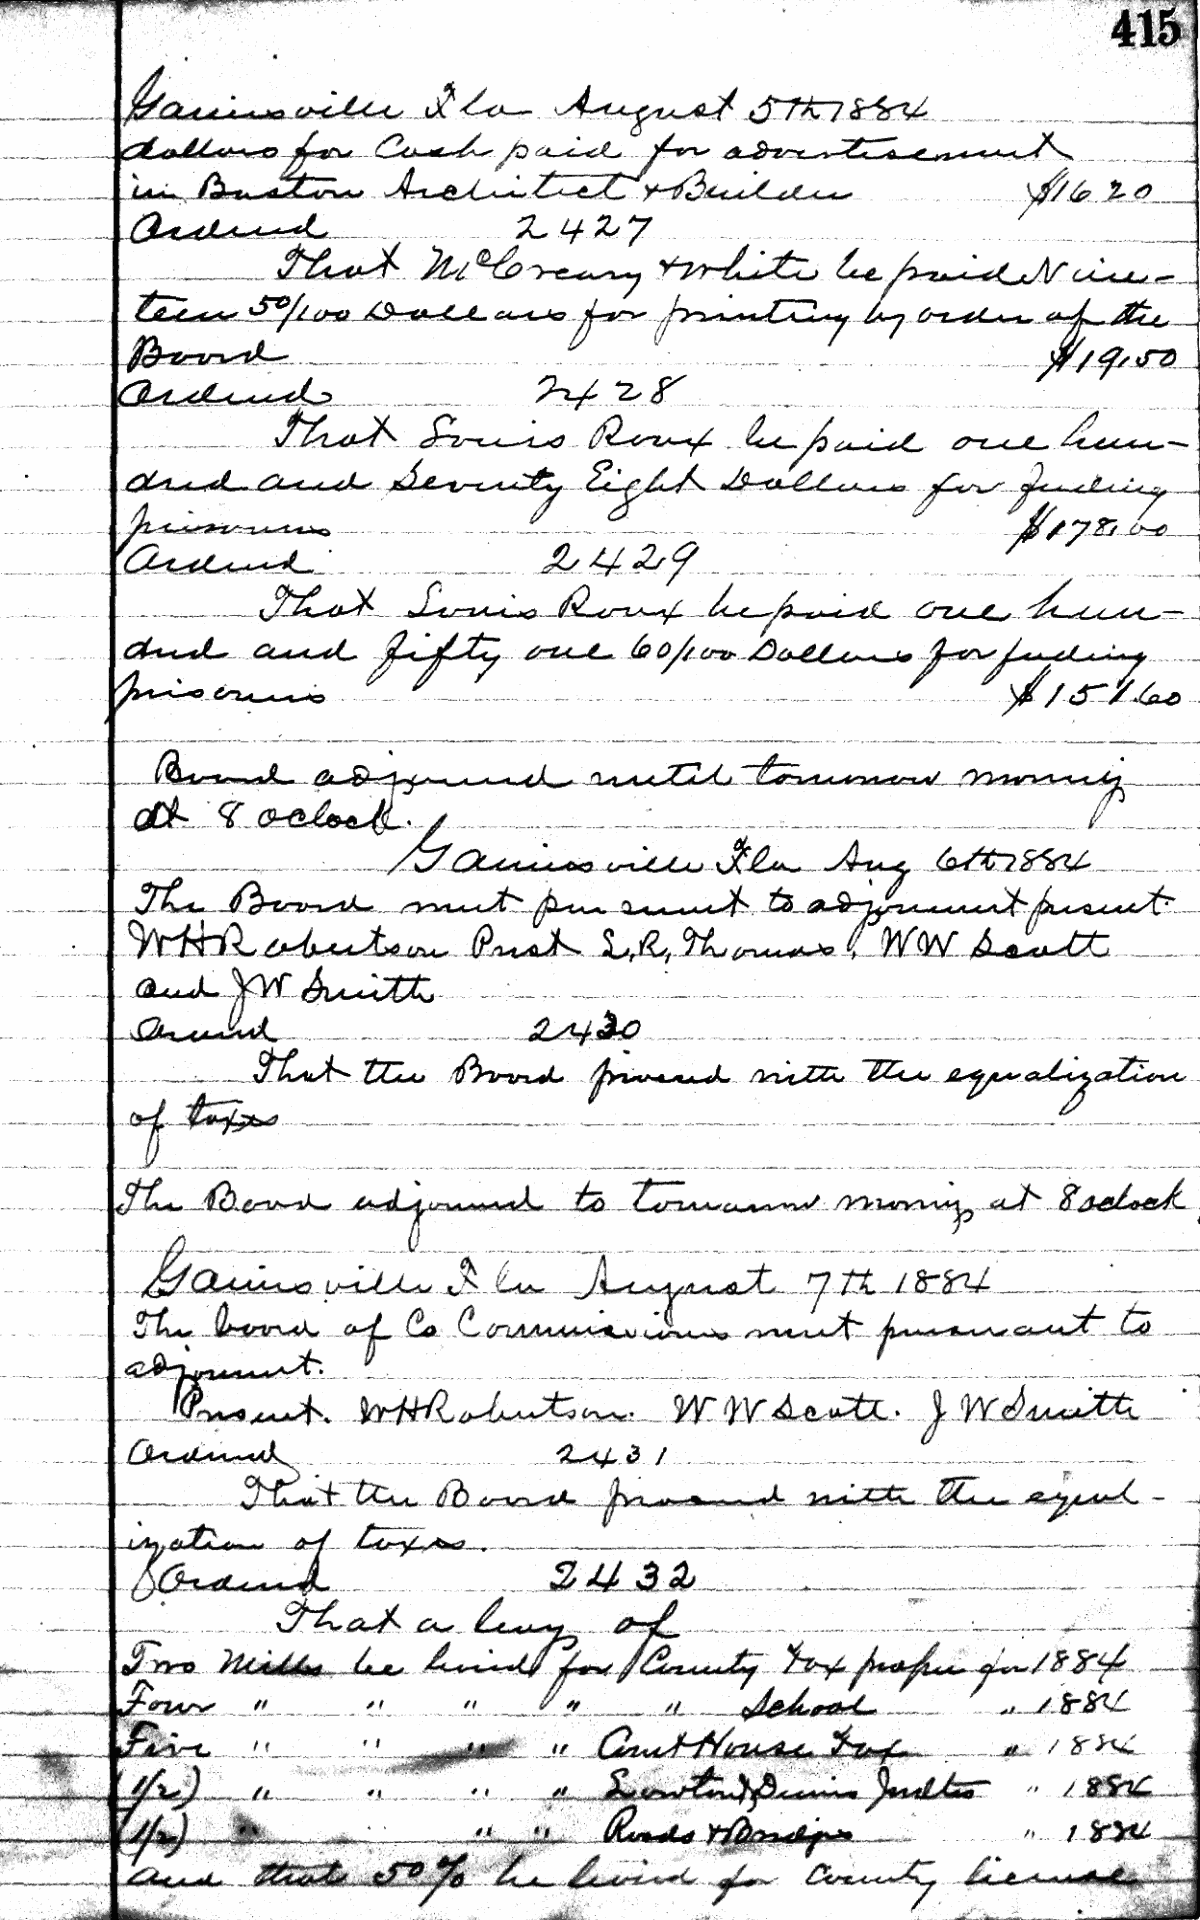 415
Gainesville Fla August 5th 1884
dollars for Cash paid for advertisement
in Boston Architect & Builder $16 20
Ordered 2427
That McCreary & White be paid Nine-
teen 50/100 Dollars for printing by order of the
Board $19.50
Ordered 2428
That Louis Roux be paid one hun-
dred and Seventy Eight Dollars for feeding
prisoners $178.00
Ordered 2429
That Louis Roux be paid one hun-
dred and fifty one 60/100 Dollars for feeding
prisoners $151.60
Board adjourned until tomorrow morning
at 8 oclock.
Gainesville Fla Aug 6th 1884
The Board met pursuant to adjournment present
W H Robertson Prest L, R, Thomas, W W Scott
and J W Smith
Ordered 2430
That the Board proceed with the equalization
of taxes
The Board adjourned to tomorrow morning at 8 oclock
Gainesville Fla August 7th 1884
The board of Co Commissioners met pursuant to
adjournment.
Present. W H Robertson. W W Scott. J W Smith
Ordered 2431
That the Board proceed with the equal-
ization of taxes.
Ordered 2432
That a levy of
Two Mills be levied for County Tax proper for 1884
Four " " " " " School " 1884
Five " " " " Court House Tax " 1884
(1/2) " " " " Judts " 1884
(1/2) " " " Roads & Bridges " 1884
and that 50% be levied for County license